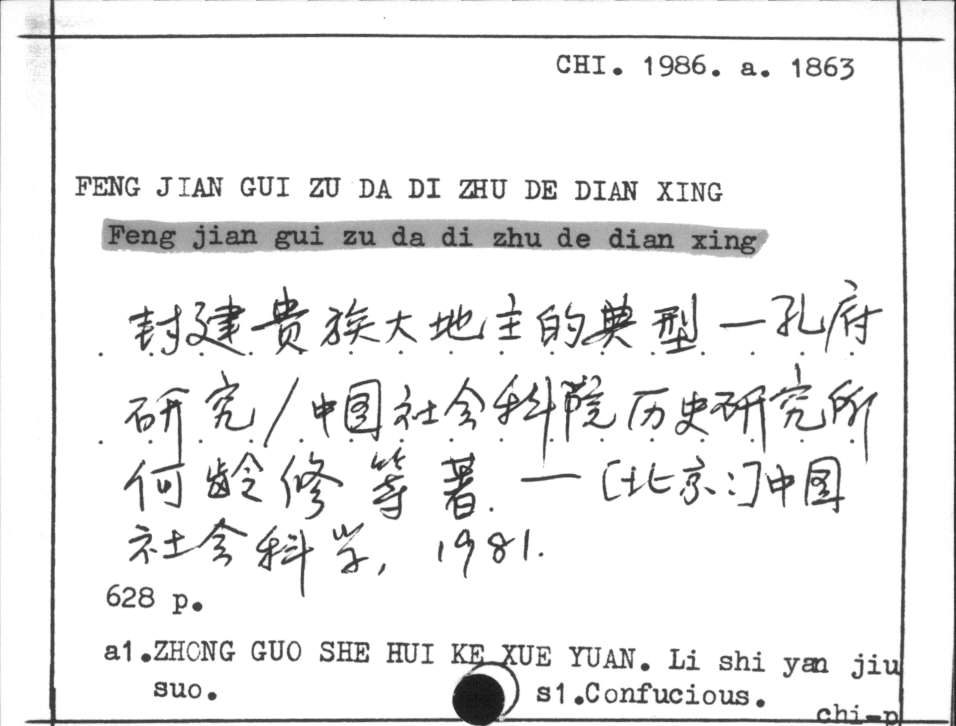 CHI. 1986. a. 1863
FENG JIAN GUI ZU DA DI ZHU DE DIAN XING
Feng jian gui zu da di zhu de dian xing
封建贵族大地主的典型—孔府
研究/中国社会科院历史研究所
何龄修等著.—[北京:]中国
社会科学, 1981.
628 p.
a1.ZHONG GUO SHE HUI KE XUE YUAN. Li shi yan jiu
suo. s1.Confucious.
chi-p